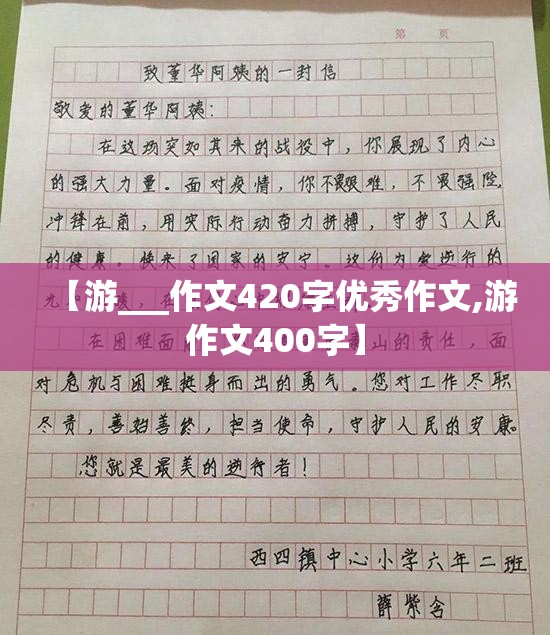 第 页
致董华阿姨的一封信
敬爱的董华阿姨:
在这场突如其来的战役中,你展现了内心
的强大力量。面对疫情,你不畏艰难,不畏强险,
冲锋在前,用实际行动奋力拼搏,守护了人民
的健康。换来了国家的安宁。这份为爱逆行的
【游___作文420字优秀作文,游
作文400字】
在困难面 山的责任,面
对危机与困难挺身而出的勇气。您对工作尽职
尽责,善始善终,担当使命,守护人民的安康。
您就是最美的逆行者!
西四镇中心小学六年二班
薛紫含